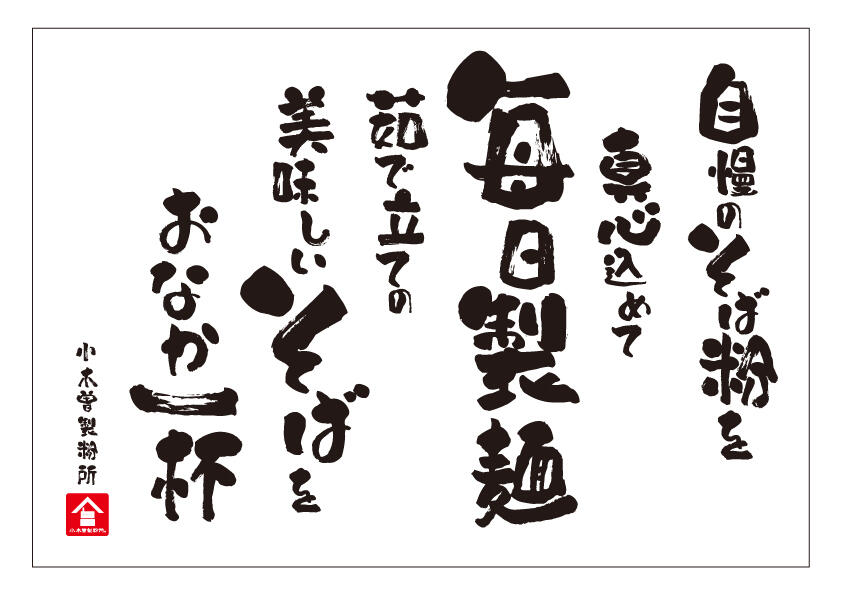 自慢のそば粉を
真心込めて
毎日製麺
茹で立ての
美味しいそばを
おなか一杯
小木曽製粉所
小木曽製粉所